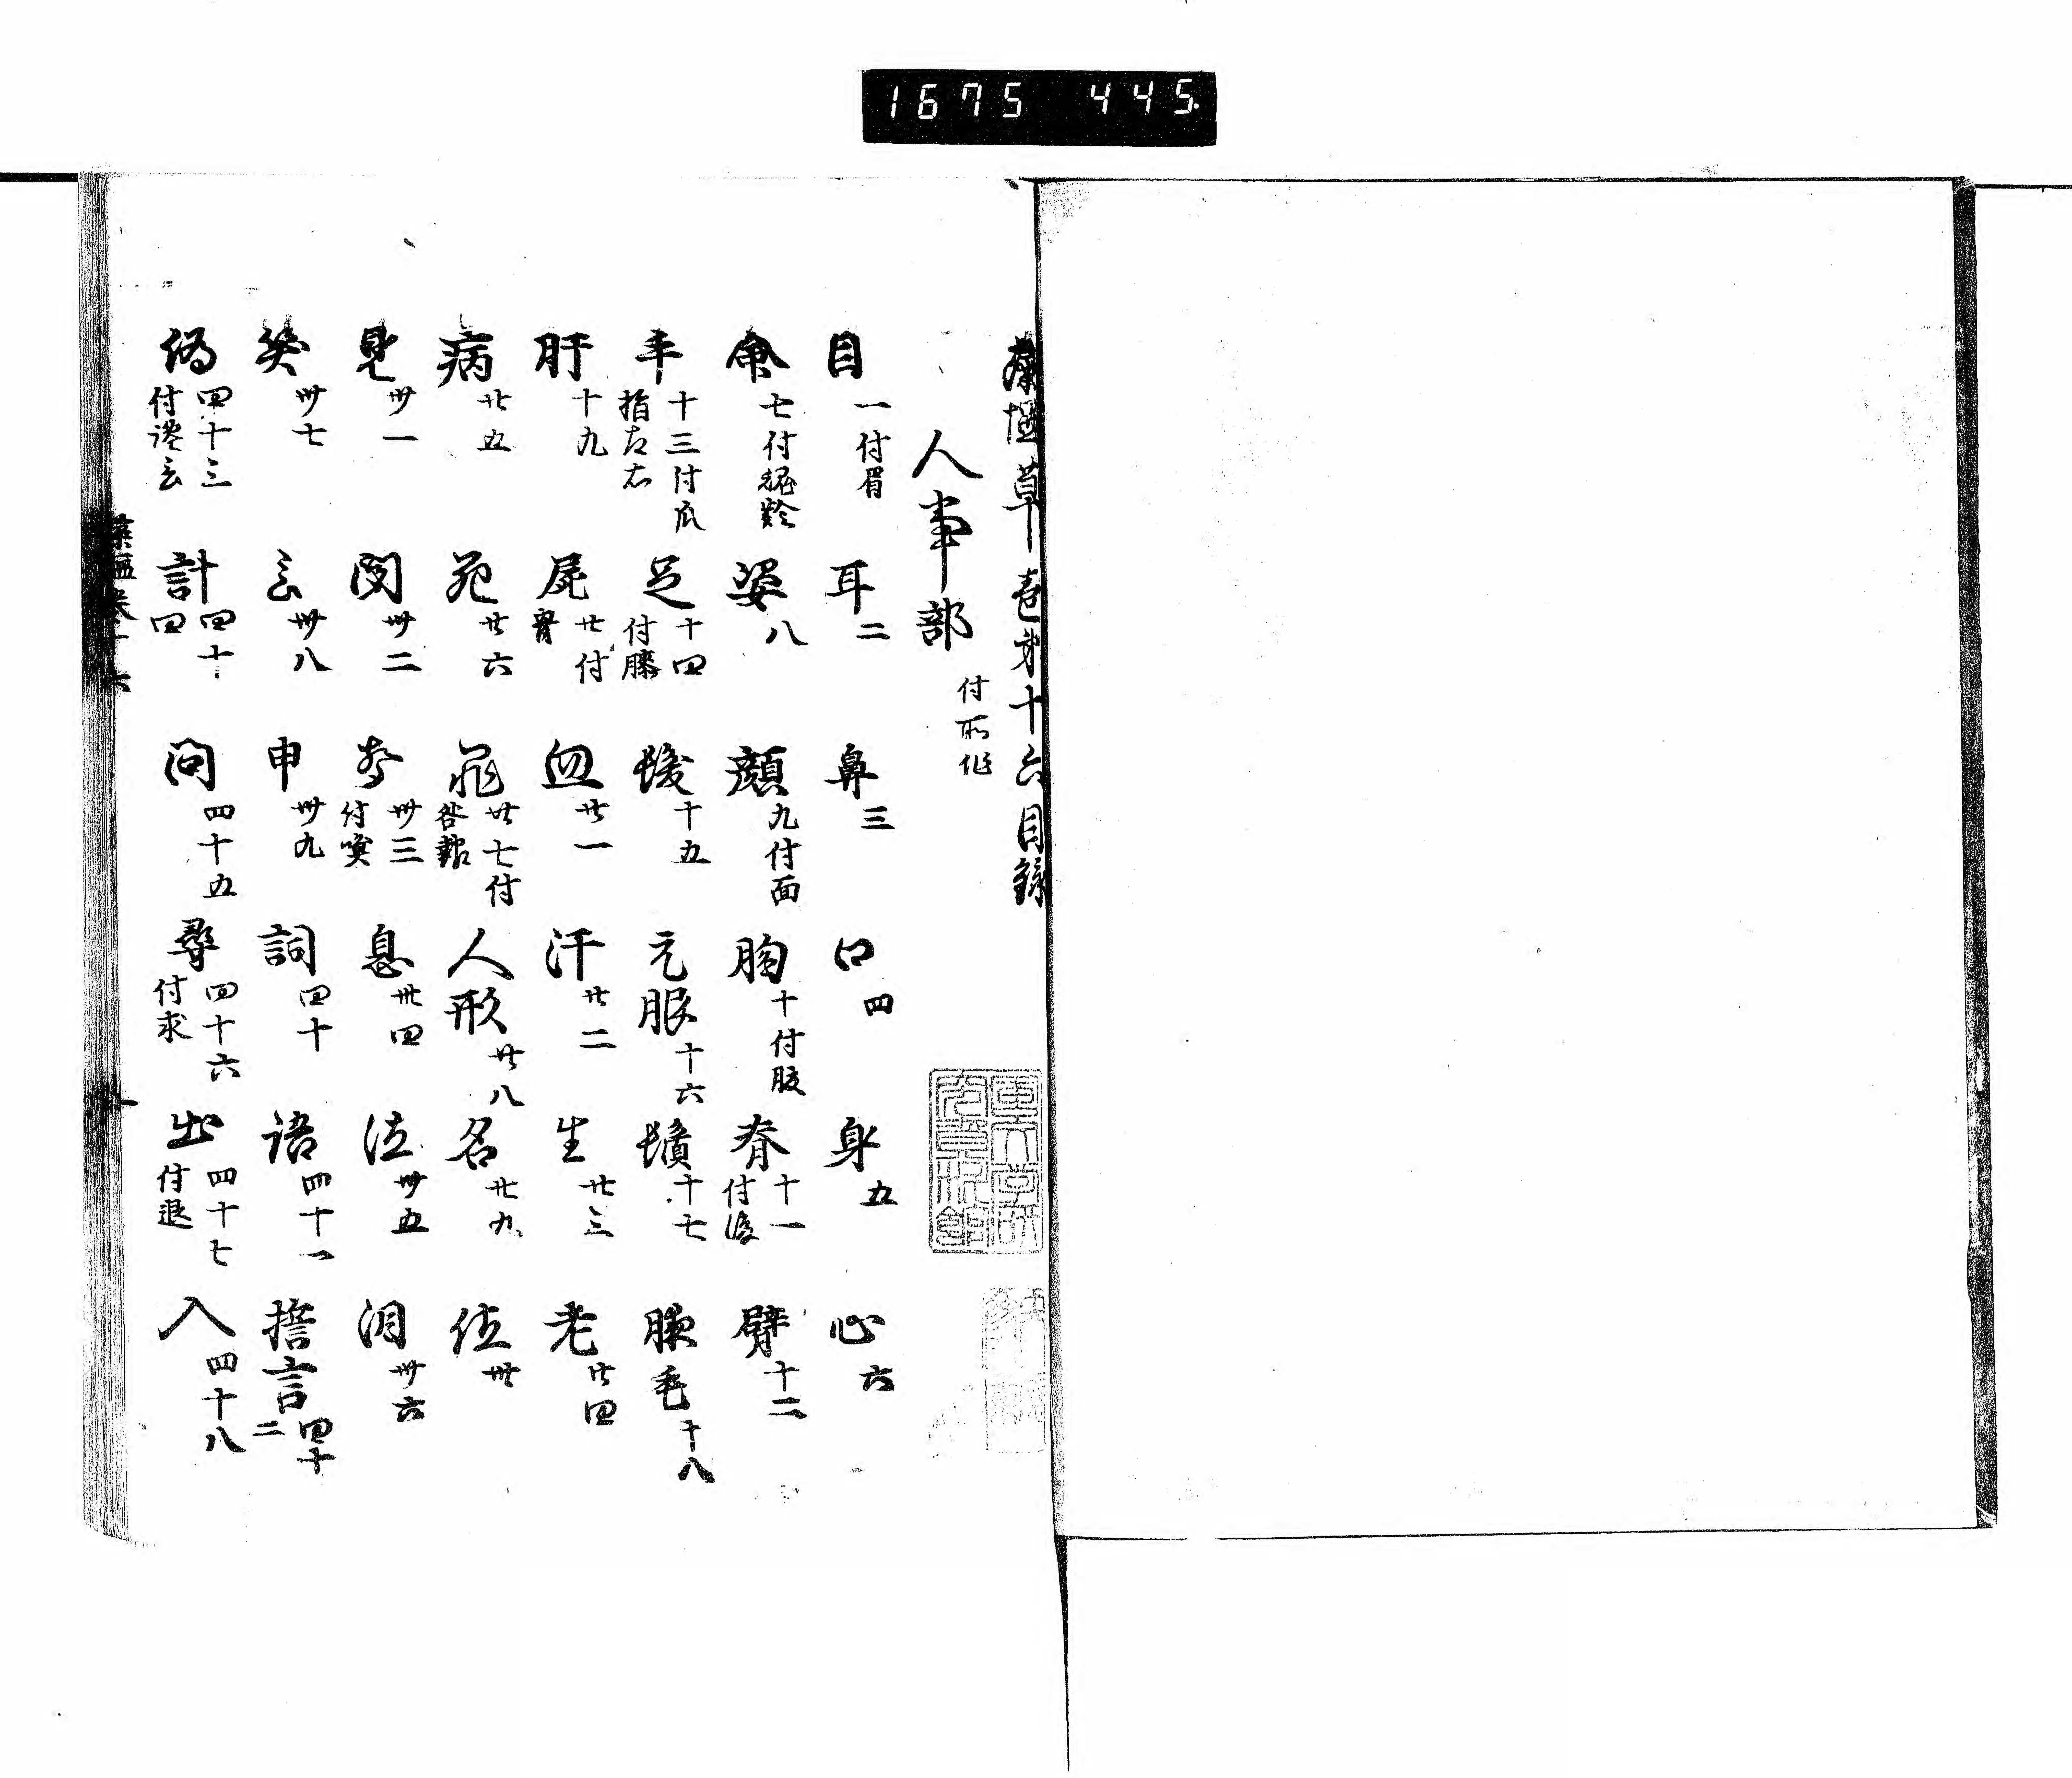 1675 445
藻塩草巻第十六目録
人事部 付所作
目 一付眉 耳 二 鼻 三 口 四 身 五 心 六
命 七付齢 姿 八 顔 九付面 胸 十付腹 脊 十一付後 臂 十二
手 十三付爪指左右 足 十四付膝 髪 十五 元服 十六 鬚 十七 腋毛 十八
肝 十九 尿 廿付 血 廿一 汗 廿二 生 廿三 老 廿四
病 廿五 死 廿六 罪 廿七付咎報 人形 廿八 名 廿九 位 卅
見 卅一 聞 卅二 声 卅三付 息 卅四 泣 卅五 泪 卅六
笑 卅七 言 卅八 申 卅九 詞 四十 語 四十一 誓言 四十二
偽 四十三付 計 四十四 問 四十五 尋 四十六付求 出 四十七付退 入 四十八
藻塩巻十六